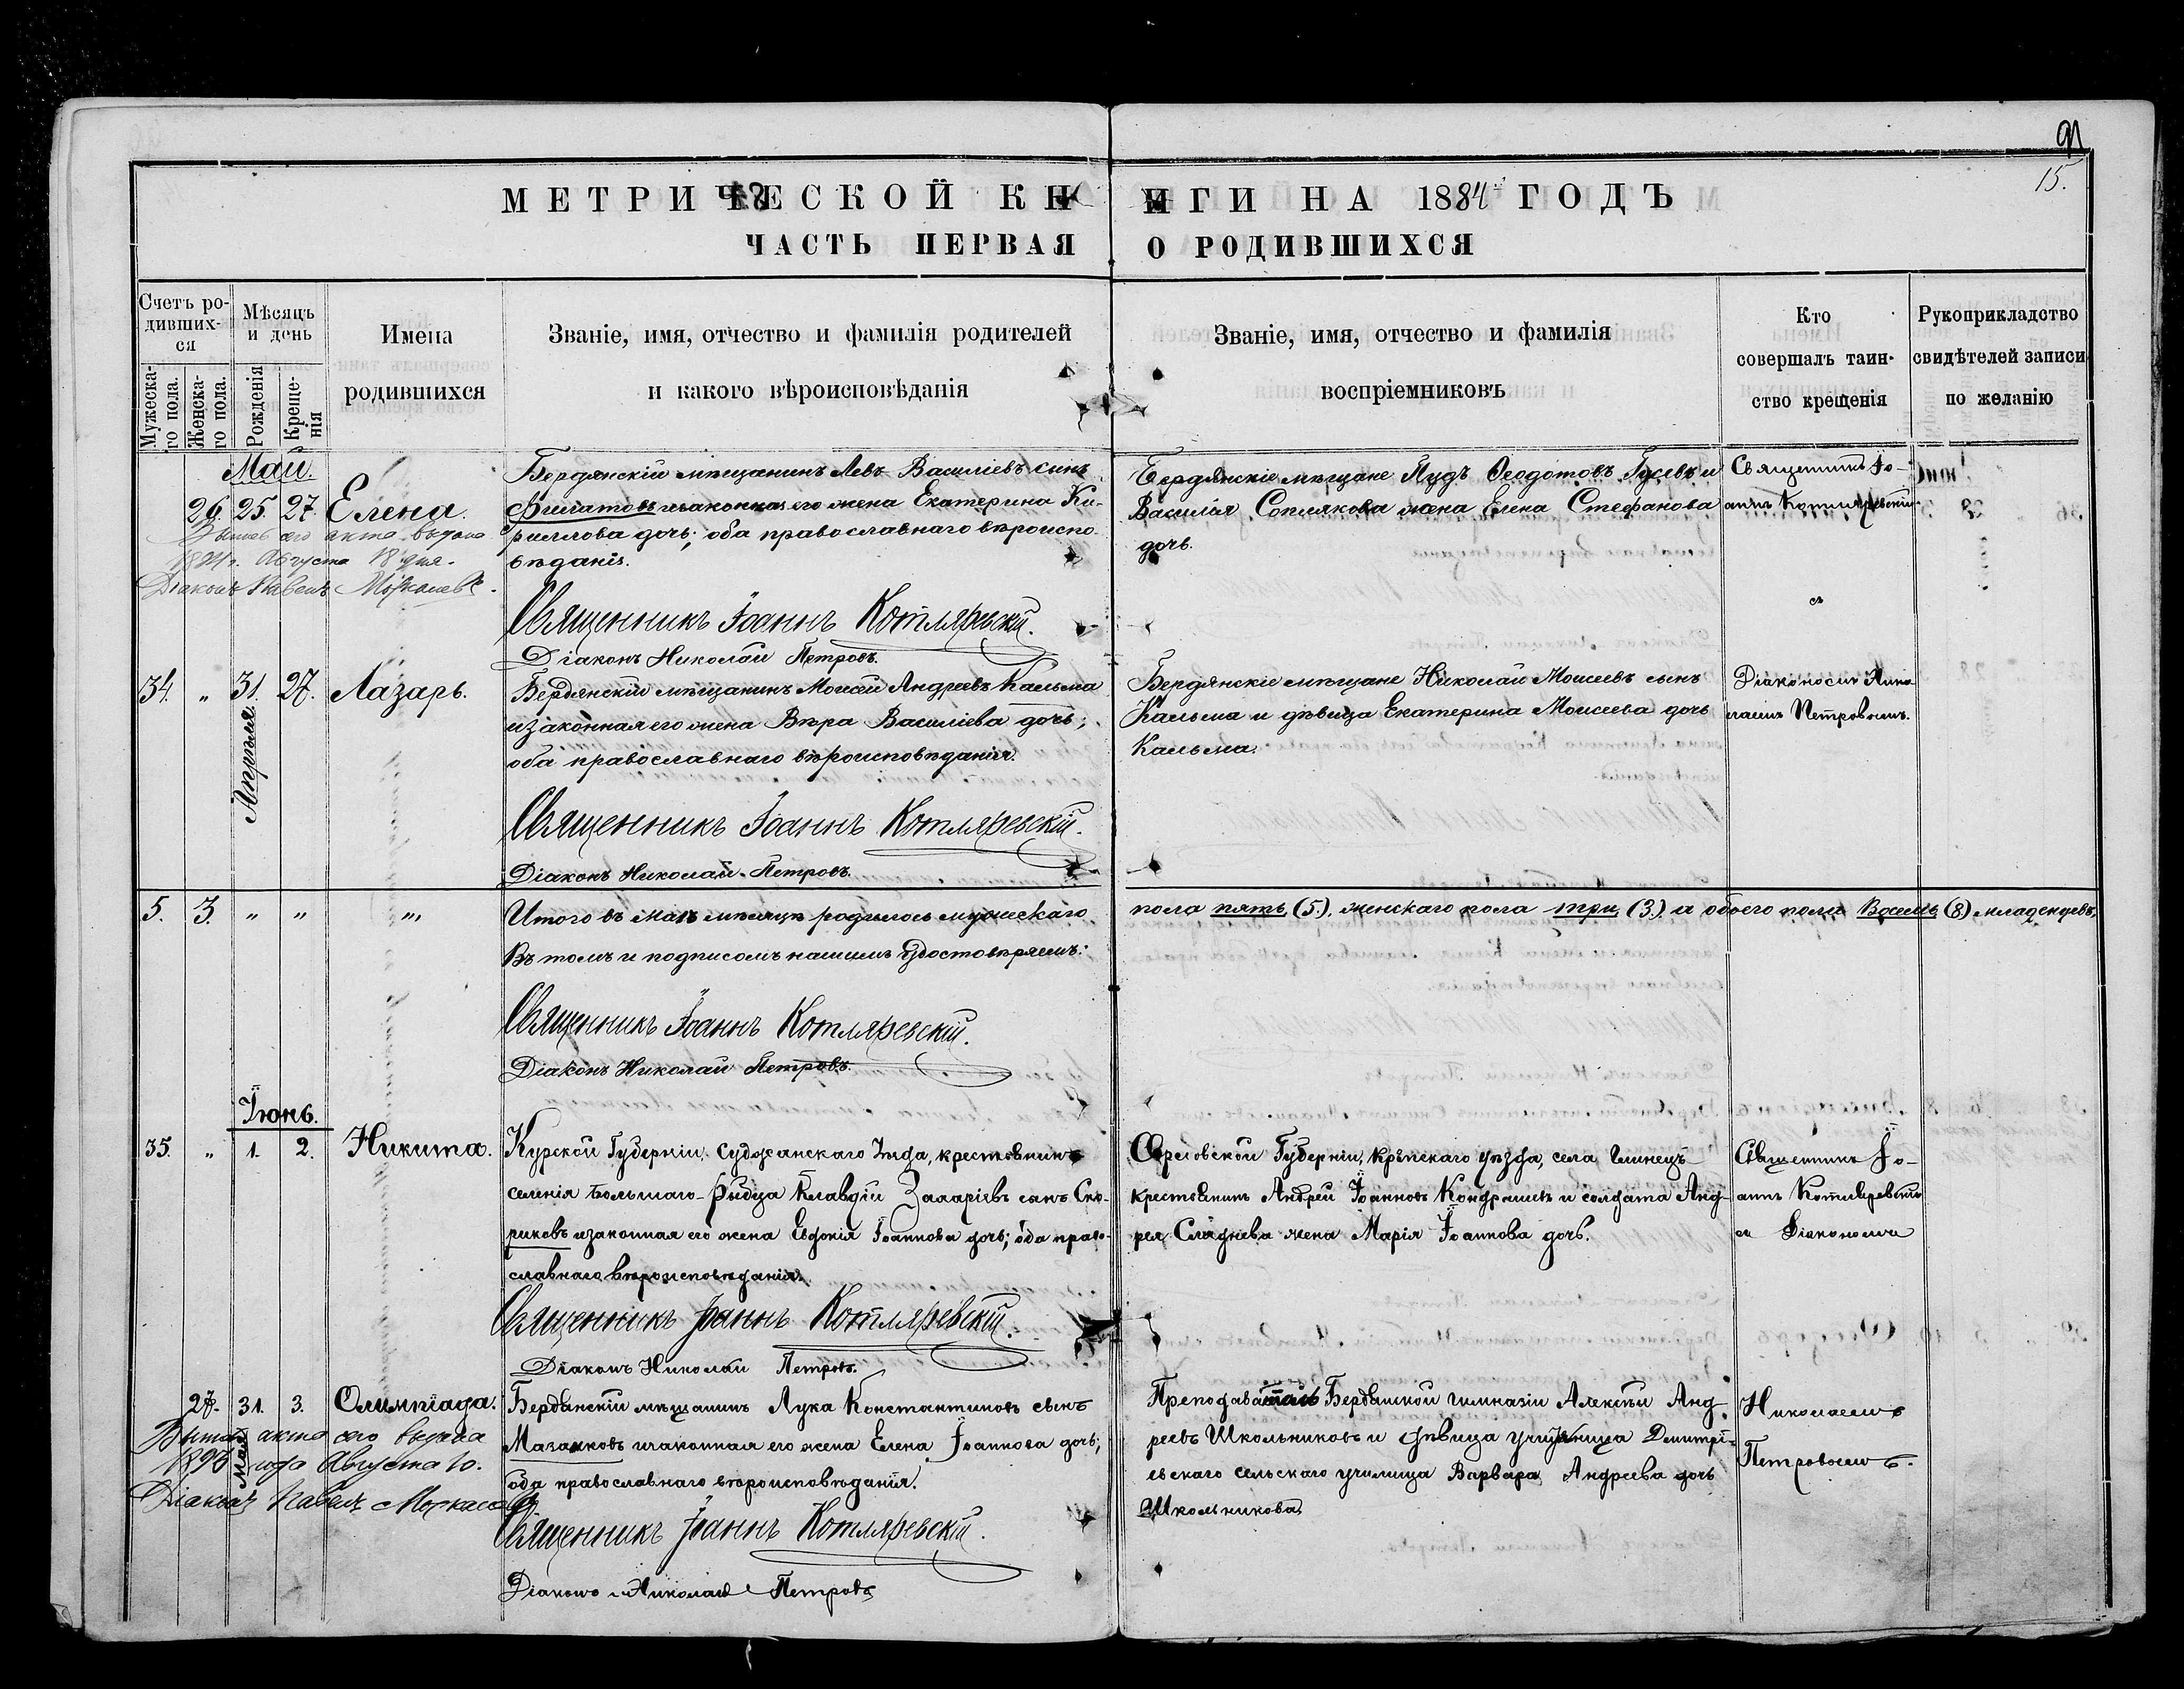 91
15.
МЕТРИЧЕСКОЙ КНИГИ НА 1884 ГОДЪ
ЧАСТЬ ПЕРВАЯ О РОДИВШИХСЯ
Счетъ ро-
дивших-
ся
Мужеска-
го пола.
Женска-
го пола.
Мѣсяцъ
и день
Рожденія
Креще-
нія
Имена
родившихся
Званіе, имя, отчество и фамилія родителей
и какого вѣроисповѣданія
Званіе, имя, отчество и фамилія
воспріемниковъ
Кто
совершалъ таин-
ство крещенія
Рукоприкладство
свидѣтелей записи
по желанію
Май.
26. 25. 27. Елена.
акта выдана
Августа 18 дня.
Діаконъ Павелъ
Бердянскій мѣщанинъ Левъ Василіевъ сынъ
Филатовъ и законная его жена Екатерина Ки-
риллова дочь; оба православнаго вѣроиспо-
вѣданія.
Священникъ Іоаннъ Котляревскій.
Діаконъ Николай Петровъ.
Бердянскіе мѣщане Іуда Ѳеодотовъ Гусевъ и
Василія Соплякова жена Елена Стефанова
дочь.
Священникъ Іо-
аннъ Котляревскій
съ
34. " 31. 27. Лазарь.
Апрѣля
Бердянскій мѣщанинъ Моисей Андреевъ Кальма
и законная его жена Вѣра Василіева дочь;
оба православнаго вѣроисповѣданія.
Священникъ Іоаннъ Котляревскій.
Діаконъ Николай Петровъ.
Бердянскіе мѣщане Николай Моисеевъ сынъ
Кальма и дѣвица Екатерина Моисеева дочь
Кальма.
Діакономъ Нико-
лаемъ Петровымъ.
5. 3. " " "
Итого въ Маѣ мѣсяцѣ родилось мужескаго
пола пять (5.), женскаго пола три (3.) а обоего пола восемь (8.) младенцевъ,
Въ томъ и подписомъ нашимъ удостовѣряемъ:
Священникъ Іоаннъ Котляревскій.
Діаконъ Николай Петровъ.
Іюнь.
35. " 1. 2. Никита.
Курской Губерніи, Суджанскаго Уѣзда, крестьянинъ
селенія Большаго- Рыбца Клавдій Захаріевъ сынъ Ско-
риковъ и законная его жена Евдокія Іоаннова дочь; оба право-
славнаго вѣроисповѣданія.
Священникъ Іоаннъ Котляревскій.
Діаконъ Николай Петровъ.
Орловской Губерніи, уѣзда, села Глинецъ
крестьянинъ Андрей Іоанновъ Кондрашевъ и солдата Анд-
рея Сладнева жена Марія Іоаннова дочь.
Священникъ Іо-
аннъ Котляревскій
съ Діакономъ
27. 31. 3. Олимпіада.
Мая
акта сего выдана
1893 года Августа 10.
Діаконъ Павелъ
Бердянскій мѣщанинъ Лука Константиновъ сынъ
Мазанковъ и законная его жена Елена Іоаннова дочь;
оба православнаго вѣроисповѣданія.
Священникъ Іоаннъ Котляревскій.
Діаконъ Николай Петровъ
Преподаватель Бердянской гимназіи Алексѣй Анд-
реевъ Школьниковъ и дѣвица учительница Димитрі-
евскаго сельскаго училища Варвара Андреева дочь
Школьникова
Николаемъ
Петровымъ.